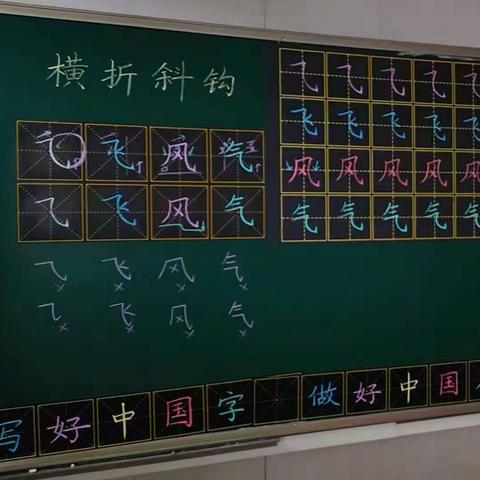 横折斜钩
⺄飞风气
⺄飞风气
⺄飞风气
⺄飞风气
⺄⺄⺄⺄⺄
飞飞飞飞飞
风风风风风
气气气气气
写好中国字 做好中国